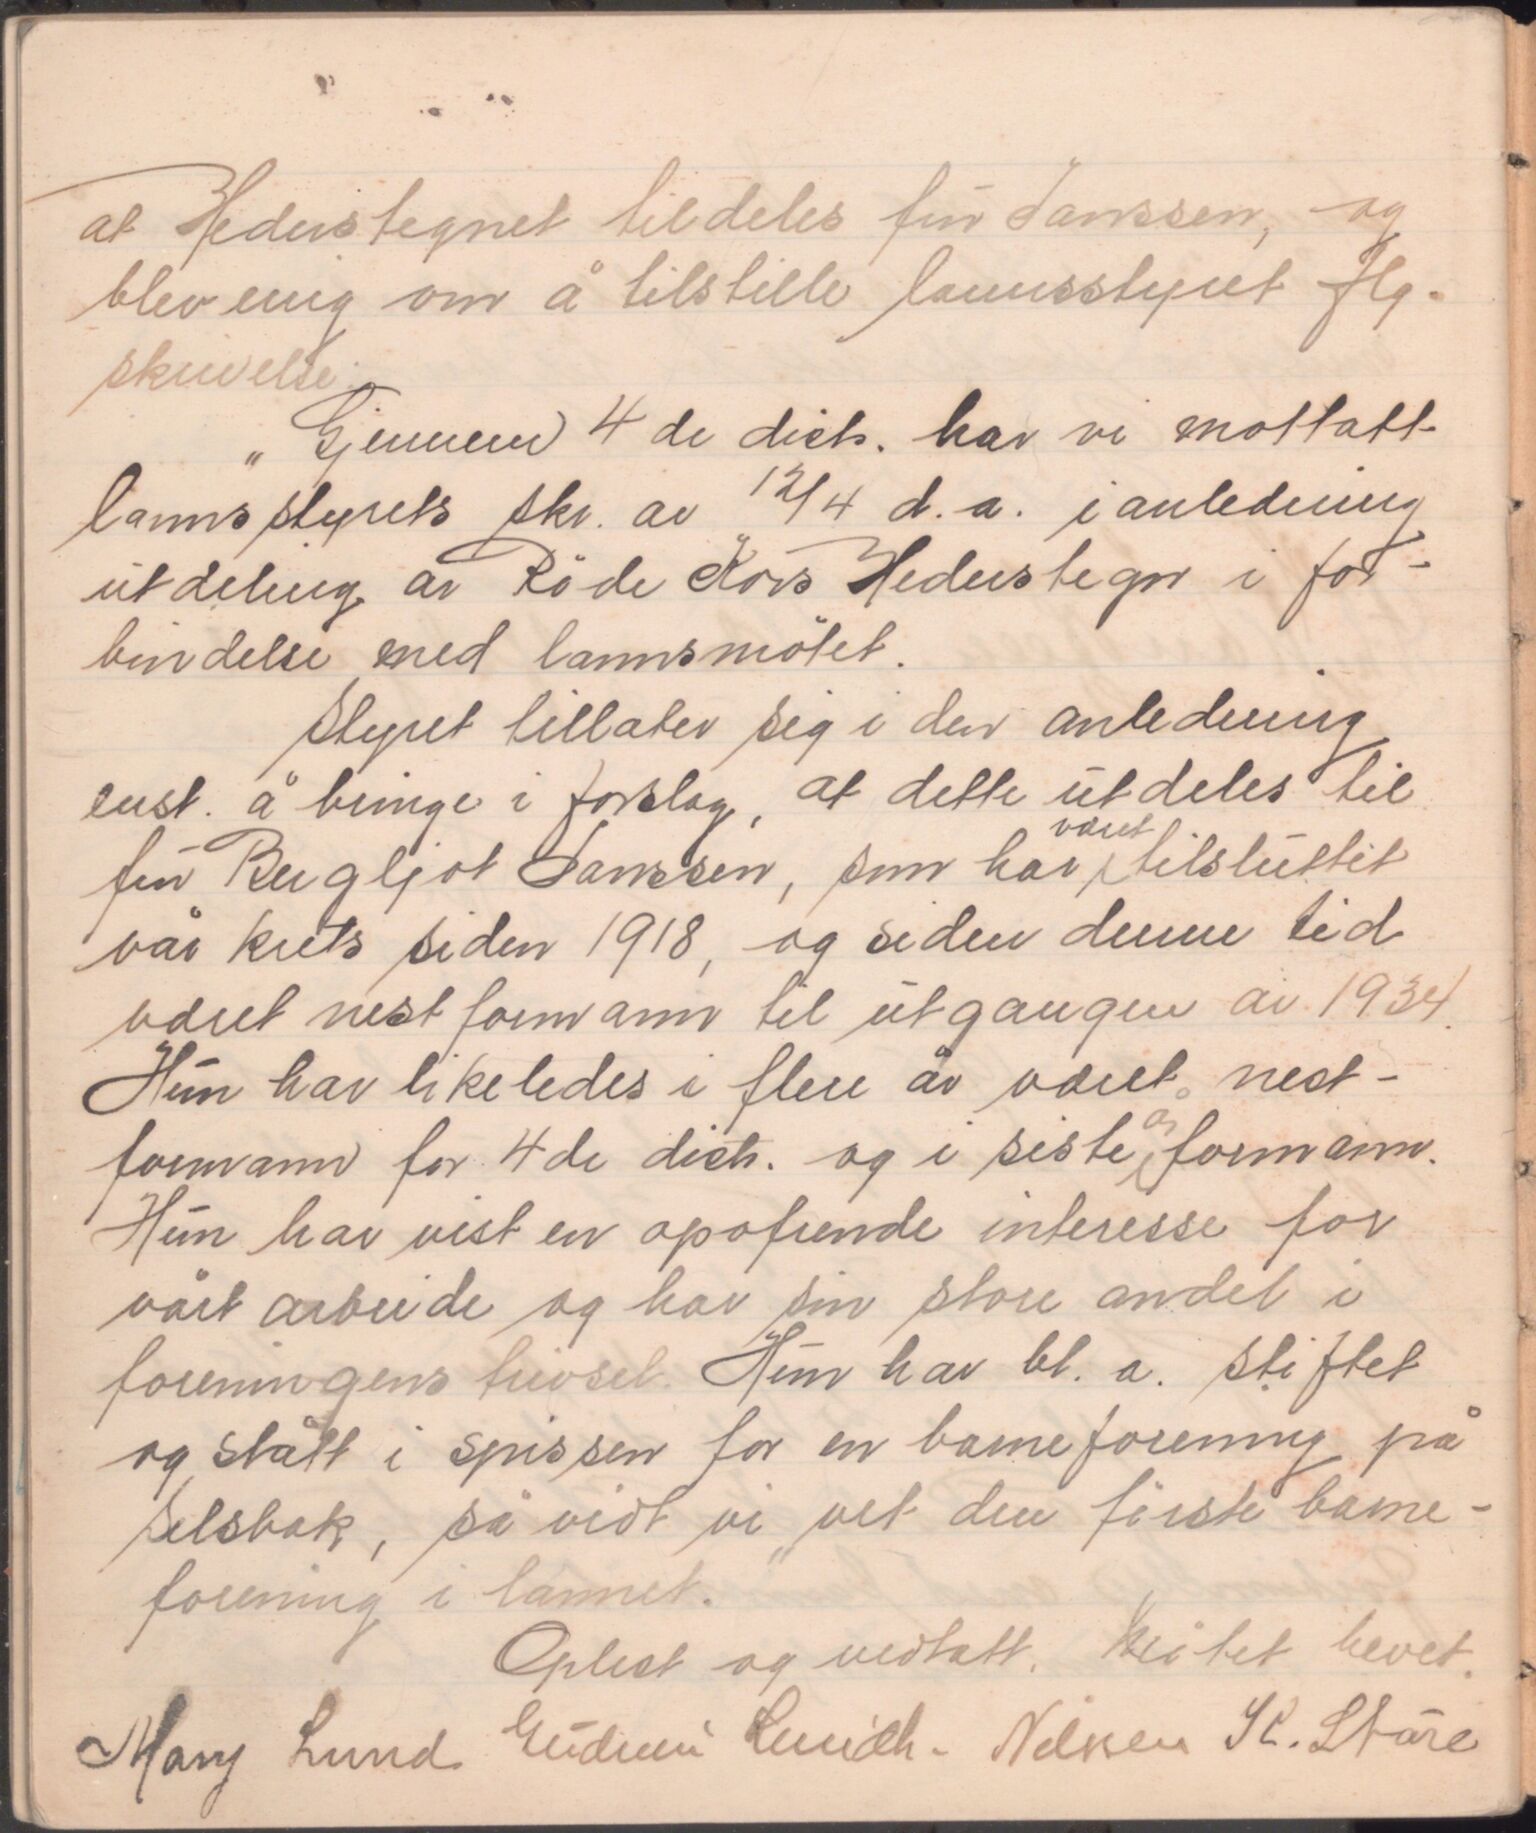 at Hederstegnet tildeles fru Janssen, og
blev enig om å tilstille lannsstyret flg.
skrivelse:
„Gjennem 4de distr. har vi mottatt
lannsstyrets skr. av 12/4 d.a. i anledning
utdeling av Röde Kors Hederstegn i for-
bindelse med lannsmötet.
Styret tillater sig i den anledning
enst. å bringe i forslag, at dette utdeles til
fru Bergljot Janssen, som har været tilsluttet
vår krets siden 1918, og siden denne tid
været nestformann til utgangen av 1934.
Hun har likeledes i flere år været nest-
formann for 4de distr. og i siste år formann.
Hun har vist en opofrende interesse for
vårt arbeide og har sin store andel i
foreningens trivsel. Hun har bl.a. stiftet
og stått i spissen for en barneforening på
Selsbak, så vidt vi vet den förste barne-
forening i lannet."
Oplest og vedtatt. Mötet hevet.
Mary Lund Gudrun Nilssen K. Støre